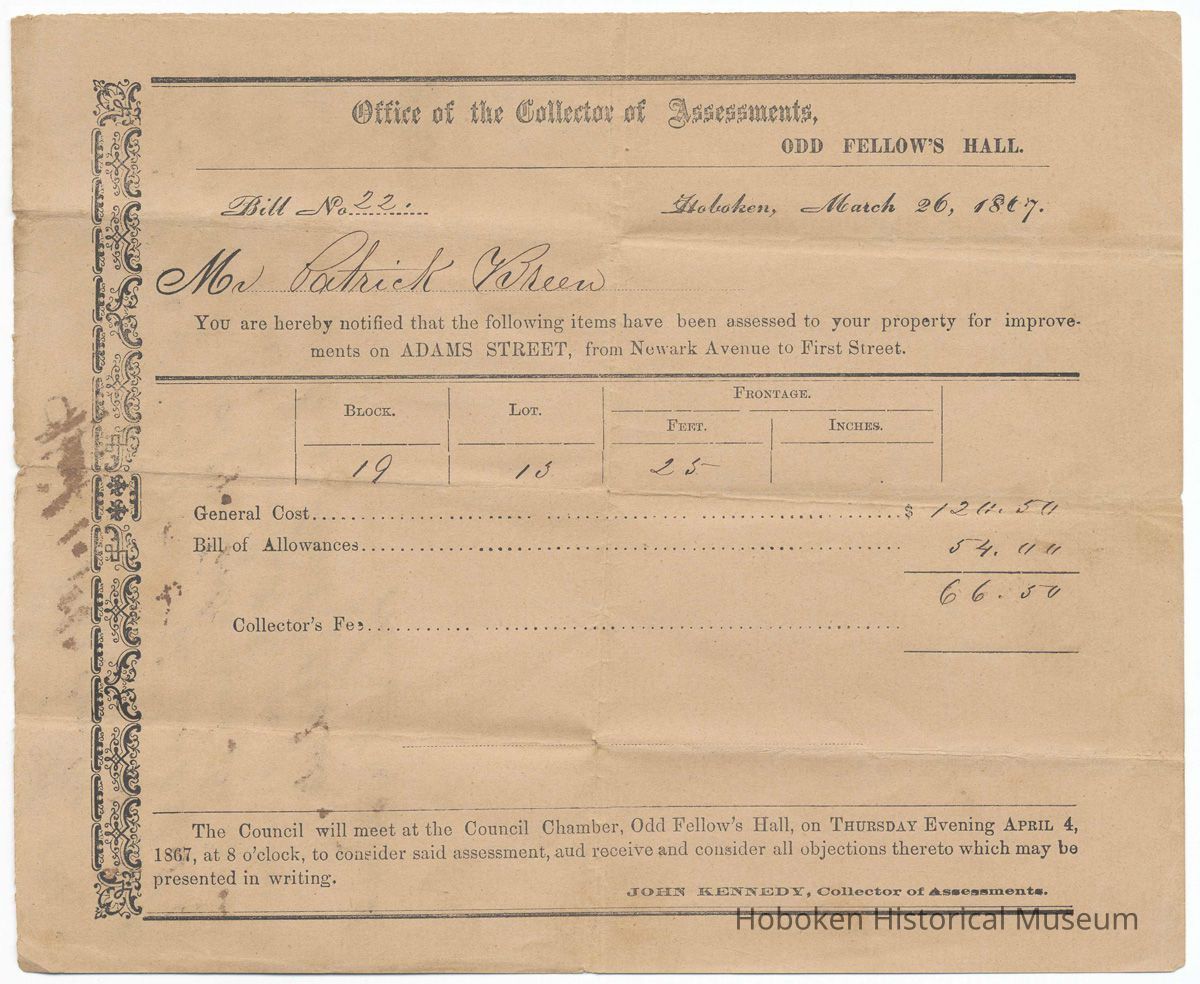 Office of the Collector of Assessments,
ODD FELLOW'S HALL.
Bill No. 22.
Hoboken, March 26, 1867.
Mr Patrick Breen
You are hereby notified that the following items have been assessed to your property for improve-
ments on ADAMS STREET, from Newark Avenue to First Street.
BLOCK. LOT. FRONTAGE.
FEET. INCHES.
19 13 25
General Cost........ $ 120.50
Bill of Allowances........ 54.00
66.50
Collector's Fee........
The Council will meet at the Council Chamber, Odd Fellow's Hall, on THURSDAY Evening APRIL 4,
1867, at 8 o'clock, to consider said assessment, aud receive and consider all objections thereto which may be
presented in writing.
JOHN KENNEDY, Collector of Assessments.
Hoboken Historical Museum